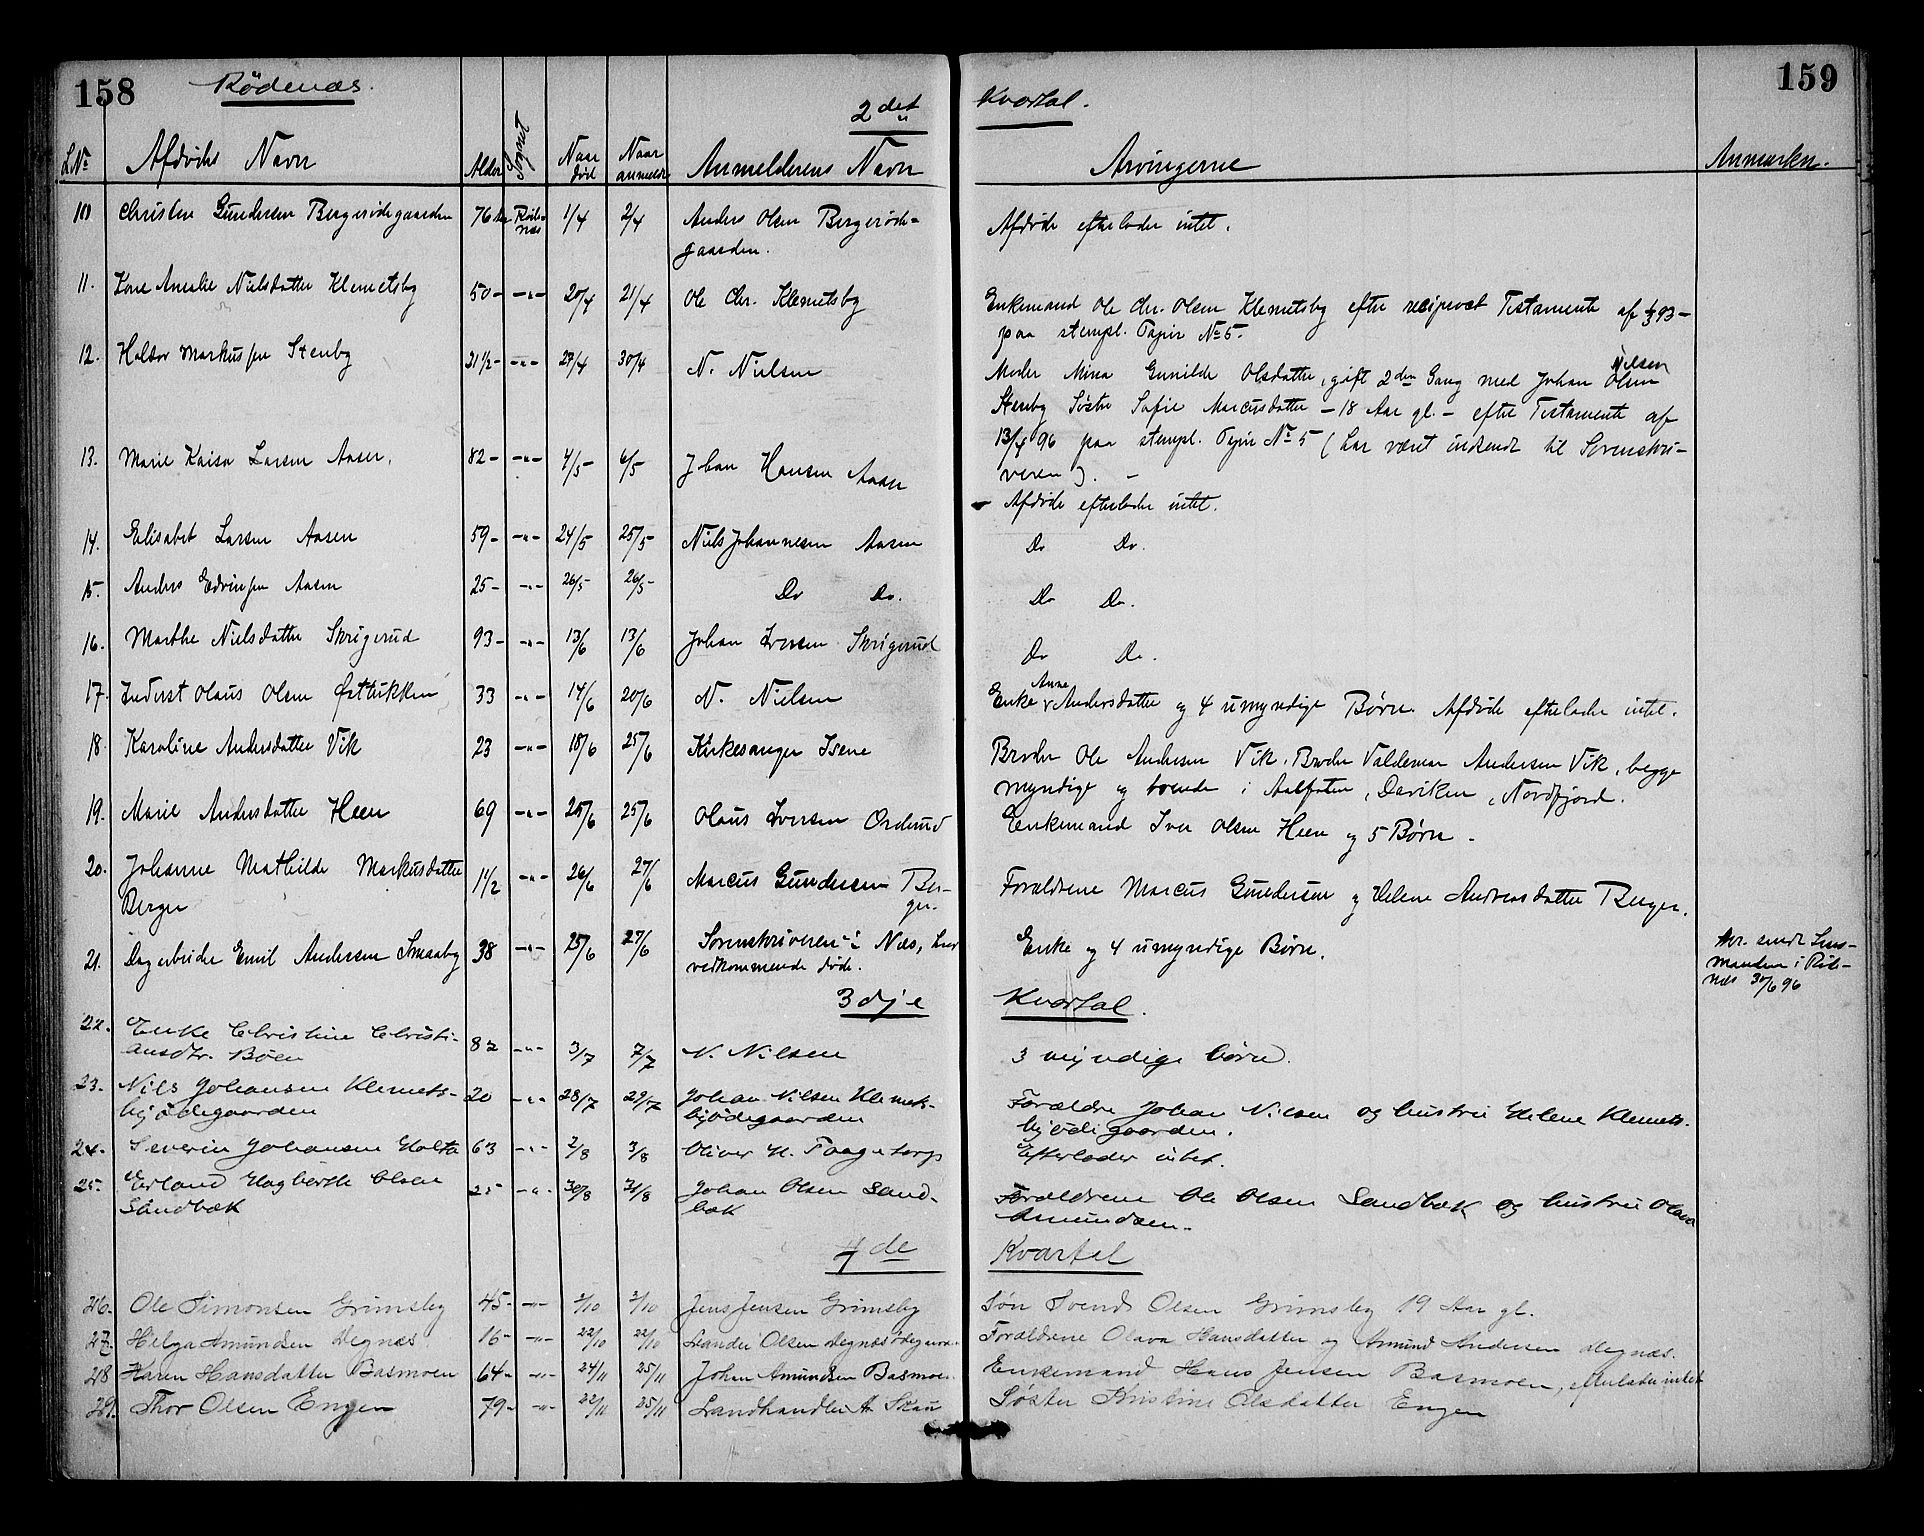 158
Rödenæs.
2det Kvartal.
159
LNo Afdødes Navn Alder Sognet Naar død Naar anmeldt Anmelderens Navn Arvingerne Anmærkn.
10 Christen Gundersen Bergerødegaarden 76 Røde- 1/4 2/4 Anders Olsen Bergerøde- Afdøde efterlader intet.
næs gaarden.
11. Amalie Nielsdatter Klemetsby 50- -"- 20/4 21/4 Ole Chr. Klemetsby Enkemand Ole Chr. Olsen Klemetsby efter reciprokt Testamente af 93-
paa stempl. Papir No 5.
12. Haldor Markussen Stenby 21 1/2- -"- 27/4 30/4 N. Nielsen Moder Mina Gunilde Olsdatter, gift 2den Gang med Johan Olsen Nilsen
Stenby Søster Sofie Marcusdatter - 18 Aar gl. - efter Testamente af
13/4 96 paa stempl. Papir No 5 (har været indsendt til Sorenskri-
veren). -
13. Marie Kaisa Larsen Aasen. 82- -"- 4/5- 6/5 Johan Hansen Aasen - Afdøde efterlader intet.
14. Elisabet Larsen Aasen 59- -"- 24/5 25/5- Niels Johannesen Aasen Do Do.
15. Anders Edvinsen Aasen 25- -"- 26/5- 26/5- Do Do. Do Do.
16. Marthe Nielsdatter Skrigerud 93- -"- 13/6 13/6 Johan Iversen Skrigerud Do Do.
17. Olaus Olsen 33 -"- 14/6 20/6 N. Nielsen Enke Anne Andersdatter og 4 umyndige Børn. Afdøde efterlader intet.
18. Karoline Andersdatter Vik 23 -"- 18/6 25/6 Kirkesanger Isene Broder Ole Andersen Vik. Broder Valdemar Andersen Vik, begge
myndige og boende i Aalfoten, Daviken, Nordfjord.
19. Marie Andersdatter Heen 69 -"- 25/6 25/6 Olaus Iversen Ordrud Enkemand Iver Olsen Heen og 5 Børn.
20. Johanne Mathilde Markusdatter 1 1/2 -"- 26/6 27/6 Marcus Gundersen Ber- Forældrene Marcus Gundersen og Helene Andreasdatter Berger.
Berger ger.
21. Dagarbeider Emil Andersen Smaaby 38 -"- 25/6 27/6 Sorenskriveren i Næs, hvor Enke og 4 umyndige Børn. sendt Lens-
vedkommende døde. manden i Røde-
næs 30/6 96
3dje Kvartal.
22. Enke Christine Christi- 82 -"- 3/7 7/7 N. Nilsen 3 myndige børn.
ansdtr. Böen
23. Nils Johansen Klemets- 20 -"- 28/7 29/7 Johan Nilsen Klemets- Forældre Johan Nilsen og hustru Helene Klemets-
byödegaarden byödegaarden byödegaarden.
24. Severin Johansen Holta 63 -"- 2/8 3/8 Oliver H. Taagetorp Efterlader intet.
25. Erland Hagbarth Olsen 25 -"- 30/8 31/8 Johan Olsen Sand- Forældrene Ole Olsen Sandbæk og hustru Olava
Sandbæk bæk Amundsen.
4de Kvartal
26. Ole Simonsen Grimsby 45- -"- 2/10 2/10 Jens Jensen Grimsby Søn Svend Olsen Grimsby 19 Aar gl.
27. Helga Amundsen Degnæs. 16- -"- 22/10 22/10 Leander Olsen Degnæs Forældrene Olava Hansdatter og Amund Andersen Degnæs.
28 Karen Hansdatter Basmoen 64- -"- 24/11 25/11 Johan Amundsen Basmoen Enkemand Hans Jensen Basmoen, efterlader intet
29. Thor Olsen Engen 79- -"- 22/11 25/11 Landhandler A. Skau Søster Kristine Olsdatter Engen